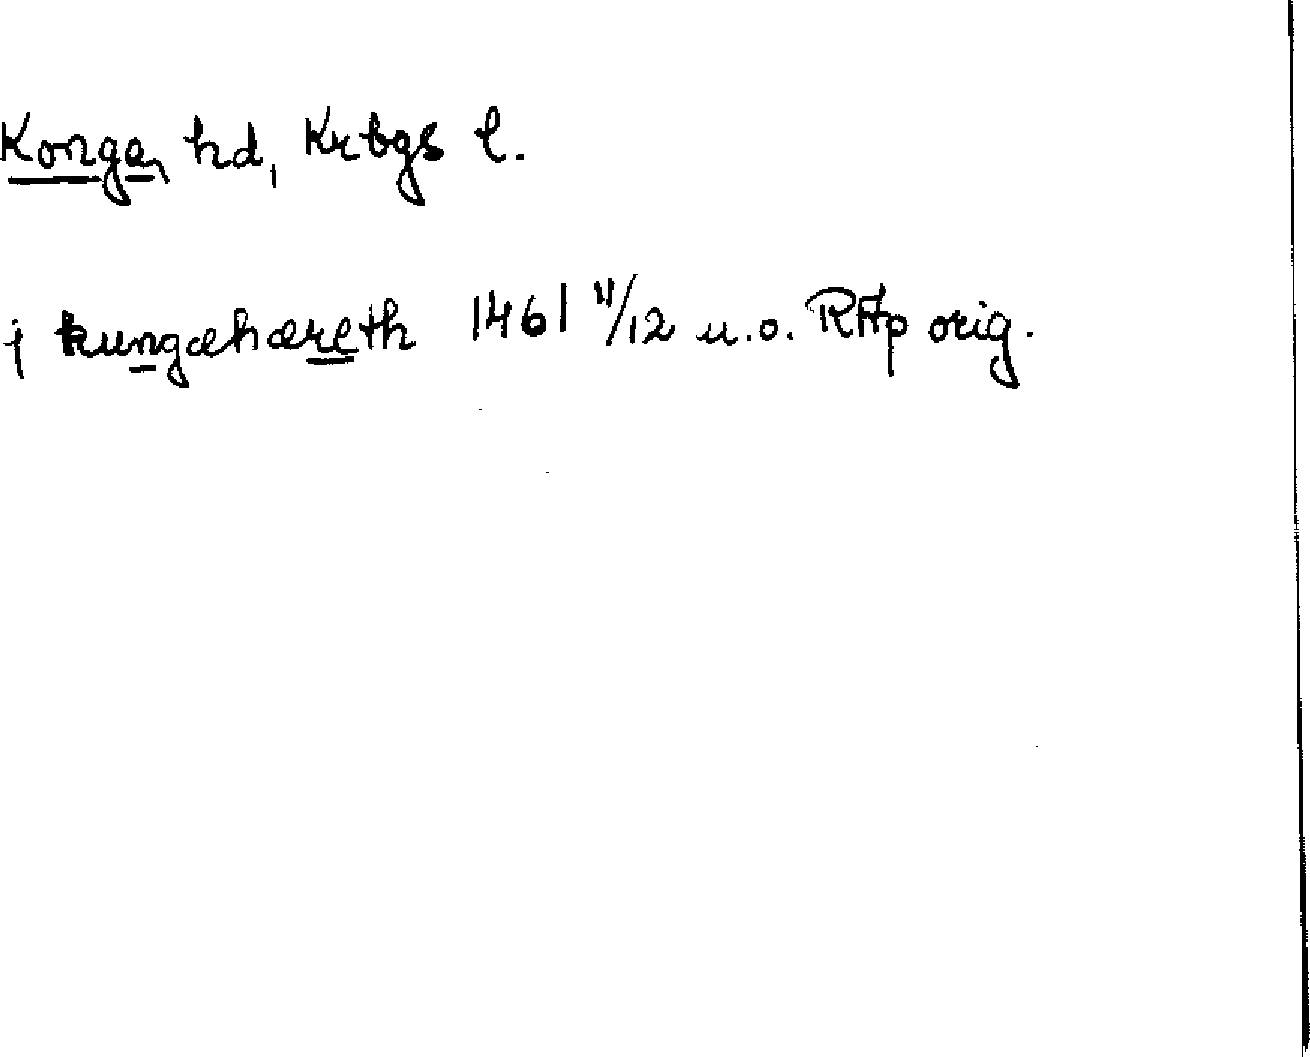 Konga hd, Krbgs l.
j kungæhæreth 1461 11/12 u.o. RAp orig.